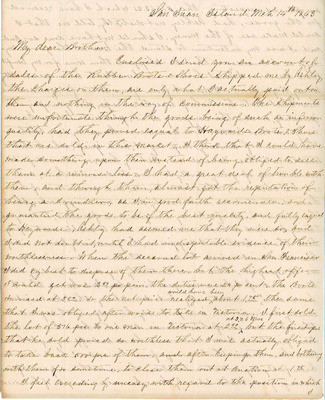 San Juan Island Mch 14th 1865
My dear Brother
Enclosed I send you an account of
sales of the Rubber Boots & Shoes shipped me by Ashley
the charges on them, are only what I actually paid out on
them and nothing in the way of Commissions. The shipments
were unfortunate through the goods being of such an inferior
quality, had they proved equal to Haywards Boots & those
that was sold in this market. I think that I could have
made something upon them instead of being obliged to sell
them at a ruinous loss. I had a great deal of trouble with
them, and through them, almost got the reputation of
being a swindler, as I in good faith recommended and
guaranteed the goods to be of the best quality and fully equal
to Haywards. Ashley had assured me that they were so, and
I did not doubt it, until I had indisputable evidence of their
worthlessness. When the second lot arrived in San Francisco
I did my best to dispose of them there, but the highest offer
I could get was
would have been
that I was obliged after wards, to take in Victoria, I first sold
the lot of
that he sold proved so worthless that I was actually obliged
to take back of them, and after keeping them, and bothering
with them for sometime, to close them out at Auction at
I feel exceedingly uneasy with regard to the position in which